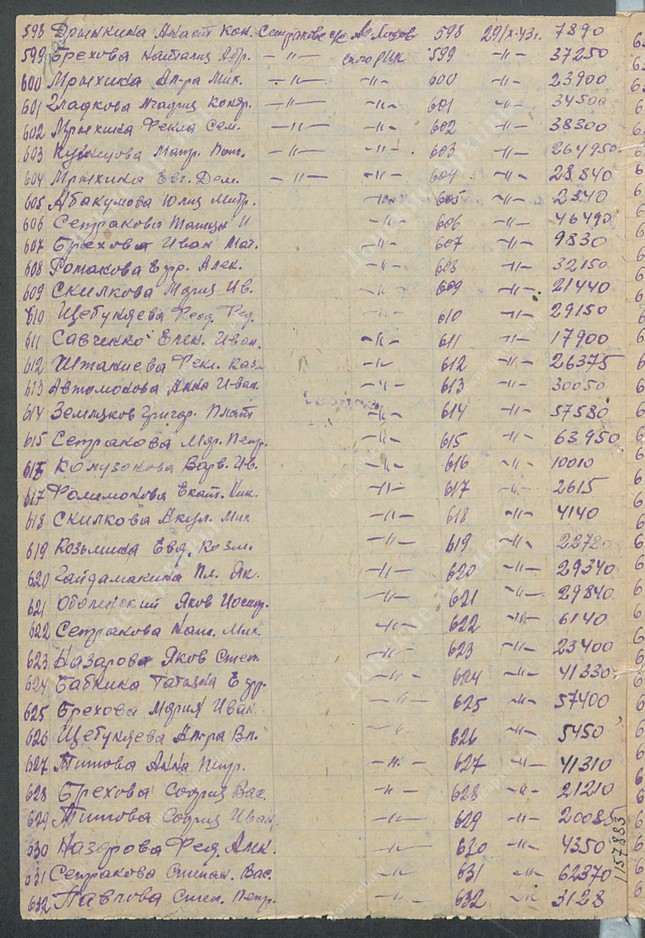 598 Дрынкина Анаст Кон. 598 29/X-43г. 7890
599 Брехова Наталия Абр. -"- 599 -"- 37250
600 Мрыхина Ал-ра Мик. -"- -"- 600 -"- 23900
601 Гладкова Мария Конд. -"- -"- 601 -"- 34500
602 Мрыхина Фекла Сем. -"- -"- 602 -"- 38300
603 Кузнецова Матр. -"- -"- 603 -"- 264950
604 Мрыхина Евг. Дем. -"- -"- 604 -"- 28840
605 Абакумова Юлия Митр. -"- 605 -"- 2340
606 Сетракова -"- 606 -"- 46490
607 Брехова Иван -"- 607 -"- 9830
608 Ефр. Алек. -"- 608 -"- 32150
609 Скилкова Мария Ив. -"- 609 -"- 21440
610 Щебуняева Феод. Фед. -"- 610 -"- 29150
611 Савченко Елен. Иван. -"- 611 -"- 17900
612 Фекл. -"- 612 -"- 26375
613 Автомонова Анна Иван. -"- 613 -"- 30050
614 Земляков Григор. Плат -"- 614 -"- 57580
615 Сетракова Мар. Петр. -"- 615 -"- 63950
616 Варв. Ив. -"- 616 -"- 10010
617 Фолимонова Екат. Ник. -"- 617 -"- 2615
618 Скилкова Акул. Мих -"- 618 -"- 4140
619 Козьмина Евд. Козм. -"- 619 -"- 22780
620 Гайдамакина Пл. Як. -"- 620 -"- 29340
621 Оболенский Яков -"- 621 -"- 29840
622 Сетракова Мик. -"- 622 -"- 6140
623 Назарова Яков Степ. -"- 623 -"- 23400
624 Бабкина Татьяна Ефр. -"- 624 -"- 41330
625 Брехова Мария Иван. -"- 625 -"- 57400
626 Щебуняева Ал-ра Вл. -"- 626 -"- 5450
627 Титова Анна Петр. -"- 627 -"- 41310
628 Брехова София Вас. -"- 628 -"- 21210
629 Титова София Иван -"- 629 -"- 20085
630 Назарова Фед. -"- 630 -"- 4350
631 Сетракова Степан. Вас. -"- 631 -"- 62370
632 Павлова Степ. Петр. -"- 632 -"- 3128
1157883